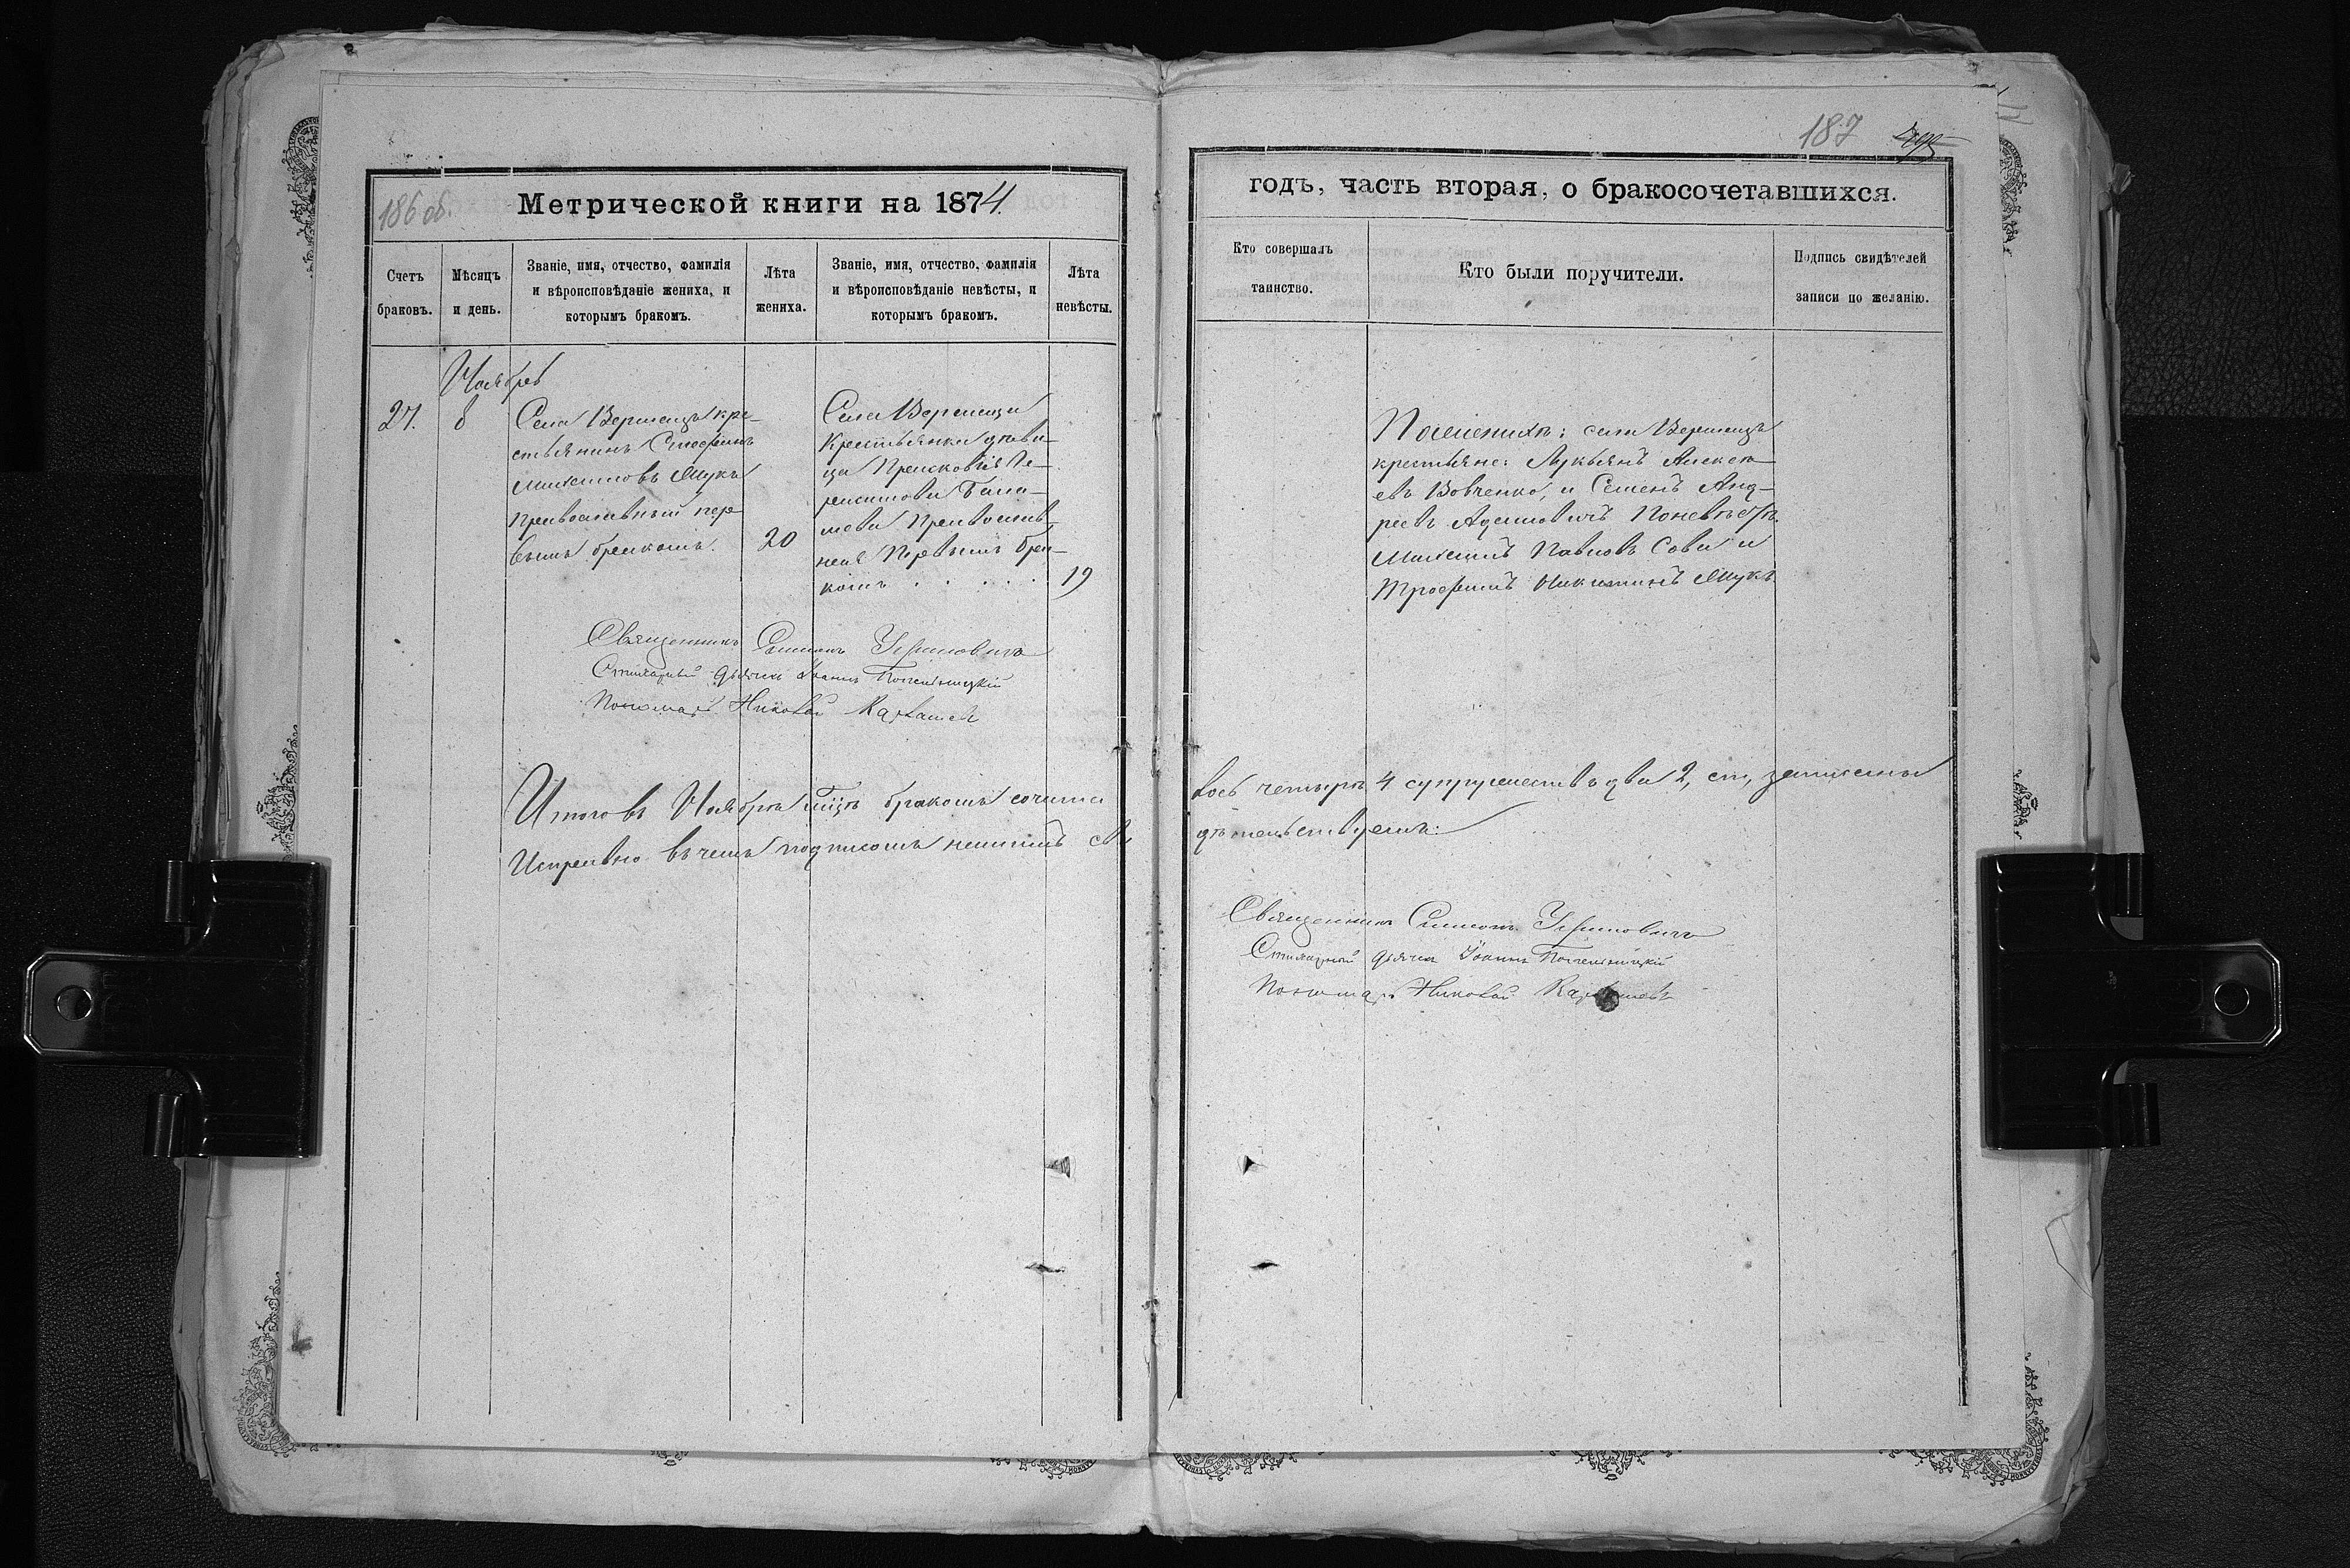 186 об.
Метрической книги на 1874
Счетъ браковъ.
Мѣсяцъ и день.
Званіе, имя, отчество, фамилія
и вѣроисповѣданіе жениха, и
которымъ бракомъ.
Лѣта жениха.
Званіе, имя, отчество, фамилія
и вѣроисповѣданіе невѣсты, и
которымъ бракомъ.
Лѣта невѣсты.
Ноября
27.
8
Села Верешицъ кре-
стьянинъ Стефанъ
Максимовъ Жукъ
православный пер-
вымъ бракомъ.
20
Села Верешицы
Крестьянка дѣви-
ца Прасковія
православ-
ная Первымъ бра-
комъ . . . . .
19
Священникъ Симеонъ
дьячекъ Іоаннъ
Пономарь Николай
Итого въ Ноябрѣ м̃цѣ бракомъ сочита
Исправно въ чемъ подписомъ нашимъ сви
187
годъ, часть вторая, о бракосочетавшихся.
Кто совершалъ
таинство.
Кто были поручители.
Подпись свидѣтелей
записи по желанію.
По женихѣ: села Верешицъ
крестьяне: Лукьянъ Алексѣ-
евъ Вовченко, и Семенъ Анд-
реевъ Адамовичъ По невѣстѣ.
Максимъ Павловъ Сова и
Трофимъ Никитинъ Жукъ
лось четыре 4 супружествъ два 2, ст, записаны
дѣтельствуемъ:
Священникъ Симеонъ
дьячекъ Іоаннъ
Пономарь Николай